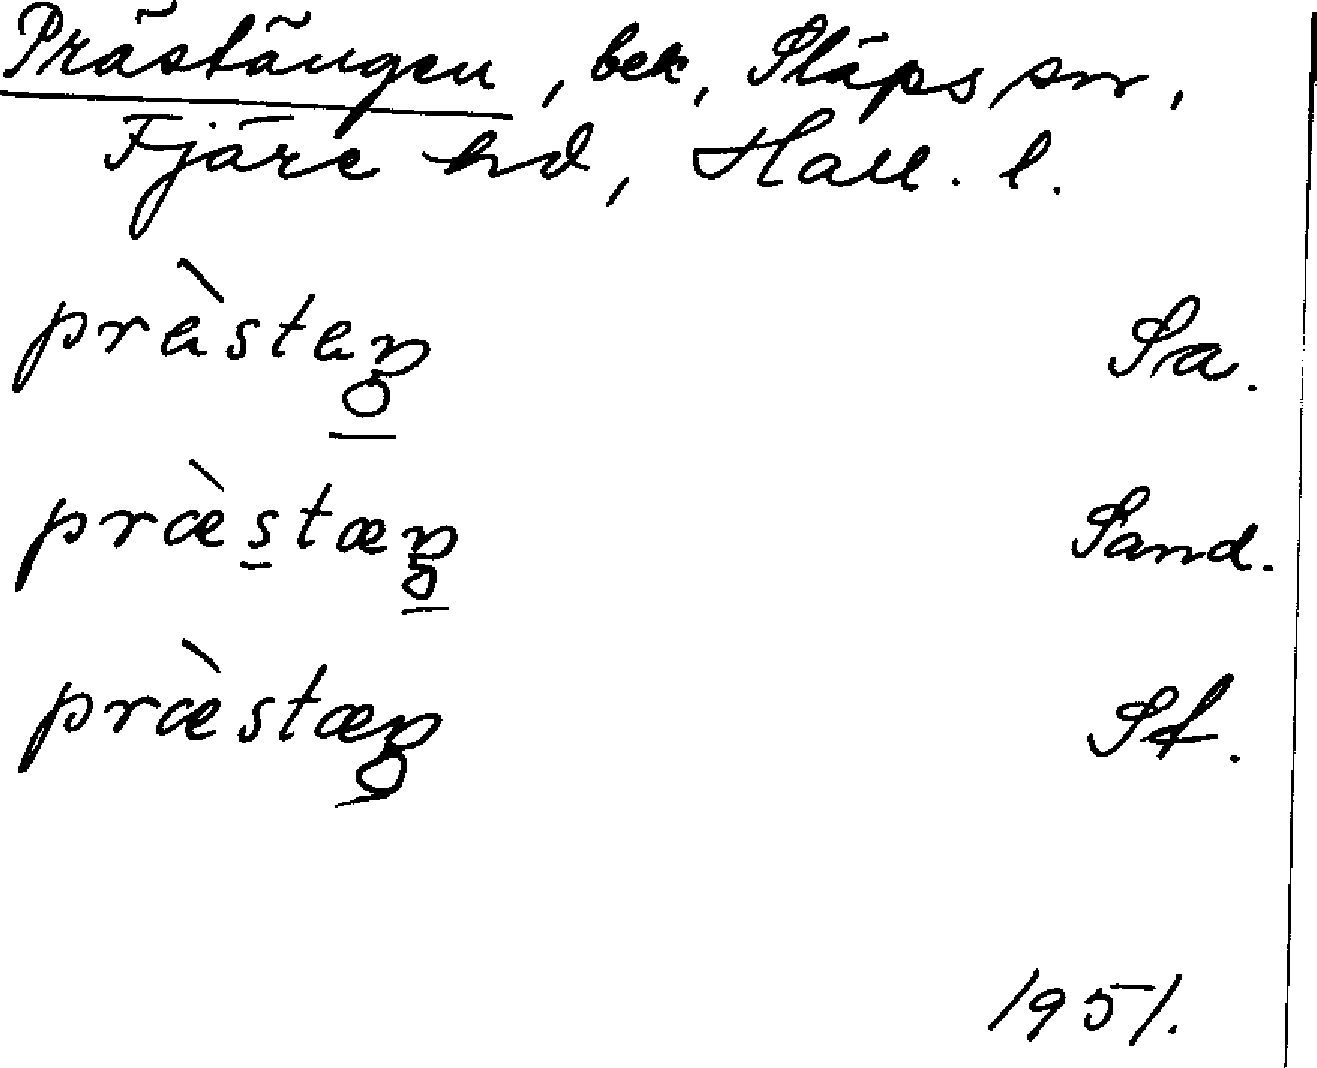 Prästängen, bek, Släps sn,
Fjäre hd, Hall. l.
præ̀stæŋ Sa.
præ̀stæŋ Sand.
præ̀stæŋ Sf.
1951.